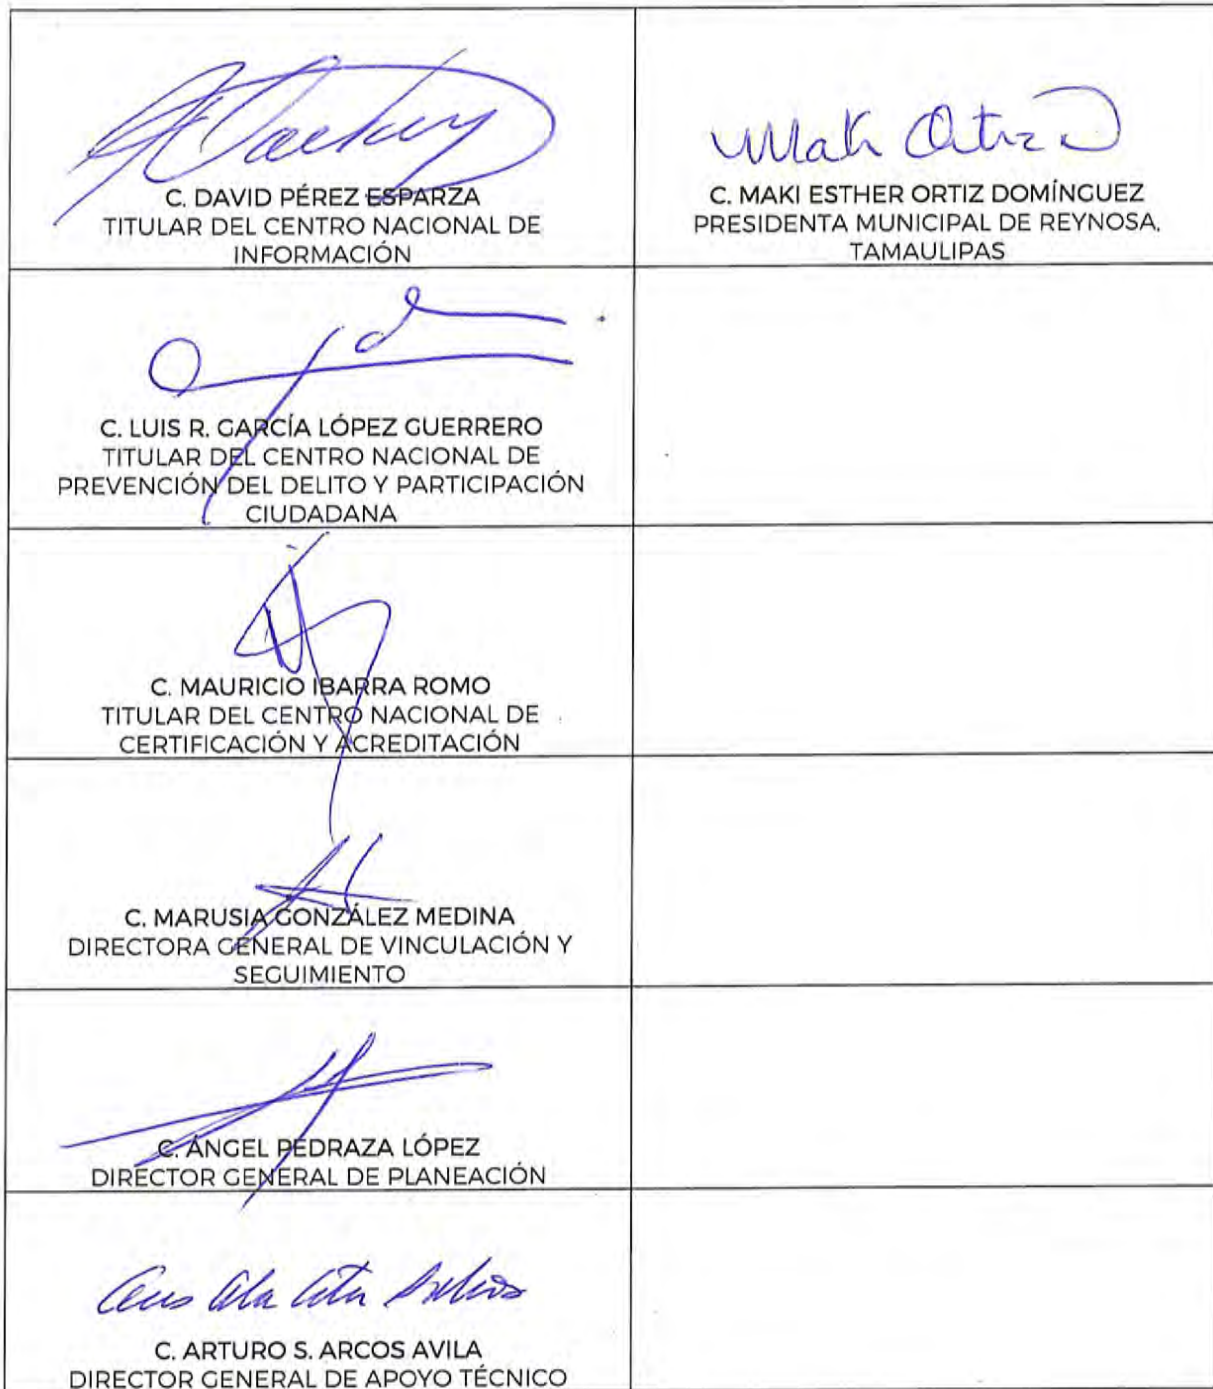 C. DAVID PÉREZ ESPARZA
TITULAR DEL CENTRO NACIONAL DE
INFORMACIÓN
Maki Ortiz D
C. MAKI ESTHER ORTIZ DOMÍNGUEZ
PRESIDENTA MUNICIPAL DE REYNOSA,
TAMAULIPAS
C. LUIS R. GARCÍA LÓPEZ GUERRERO
TITULAR DEL CENTRO NACIONAL DE
PREVENCIÓN DEL DELITO Y PARTICIPACIÓN
CIUDADANA
C. MAURICIO IBARRA ROMO
TITULAR DEL CENTRO NACIONAL DE
CERTIFICACIÓN Y ACREDITACIÓN
C. MARUSIA GONZÁLEZ MEDINA
DIRECTORA GENERAL DE VINCULACIÓN Y
SEGUIMIENTO
C. ÁNGEL PEDRAZA LÓPEZ
DIRECTOR GENERAL DE PLANEACIÓN
C. ARTURO S. ARCOS AVILA
DIRECTOR GENERAL DE APOYO TÉCNICO